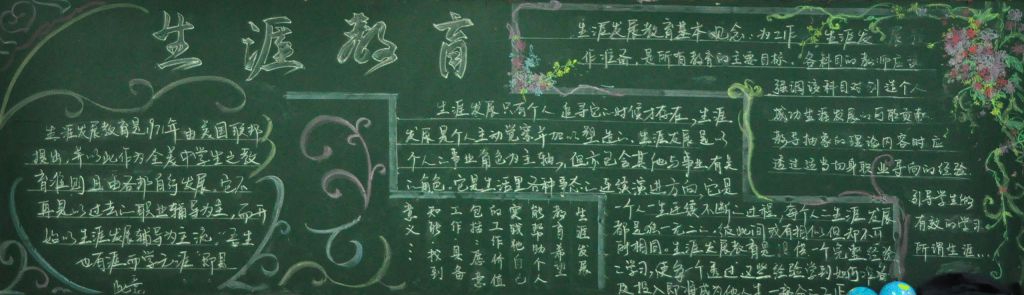 生涯教育
生涯发展教育是1971年由美国联邦
提出,并以此作为全美中学生之教
育准因且由各部自的发展,它不
再是以过去之职业辅导为主,而开
始以生涯发展辅导为主流。吾生
也有涯而学无涯 即是
此意
生涯发展只有个人追寻它的时候才存在,生涯
发展是个人主动觉察并加以塑造的,生涯发展是以
个人之事业角色为主轴,但亦包含其他与事业有关
之角色,它是生活里各种事态之连续演进方向,它是
一个人一生连续不断之过程,每个人之生涯发展
都是独一无二,
所相同。生涯发展教育是 一个完整经验
之学习,使每个 透过这些经验学到如何准备
及投入即将成为他人生一部
生涯发展
教育希望
能够协助个人
实践他自己
的工作价值
包括:愿意
工作、具备
知能、找到
意义…
生涯发展教育基本观念:为工作、生涯发展
作准备,是所有教育的主要目标,各科目的教师应该
强调该科目对引导个人
成功生涯发展的可能贡献
教导抽象的理论内容时应
透过适当切身职业导向的经验
引导学生做
有效的学习
所谓生涯…